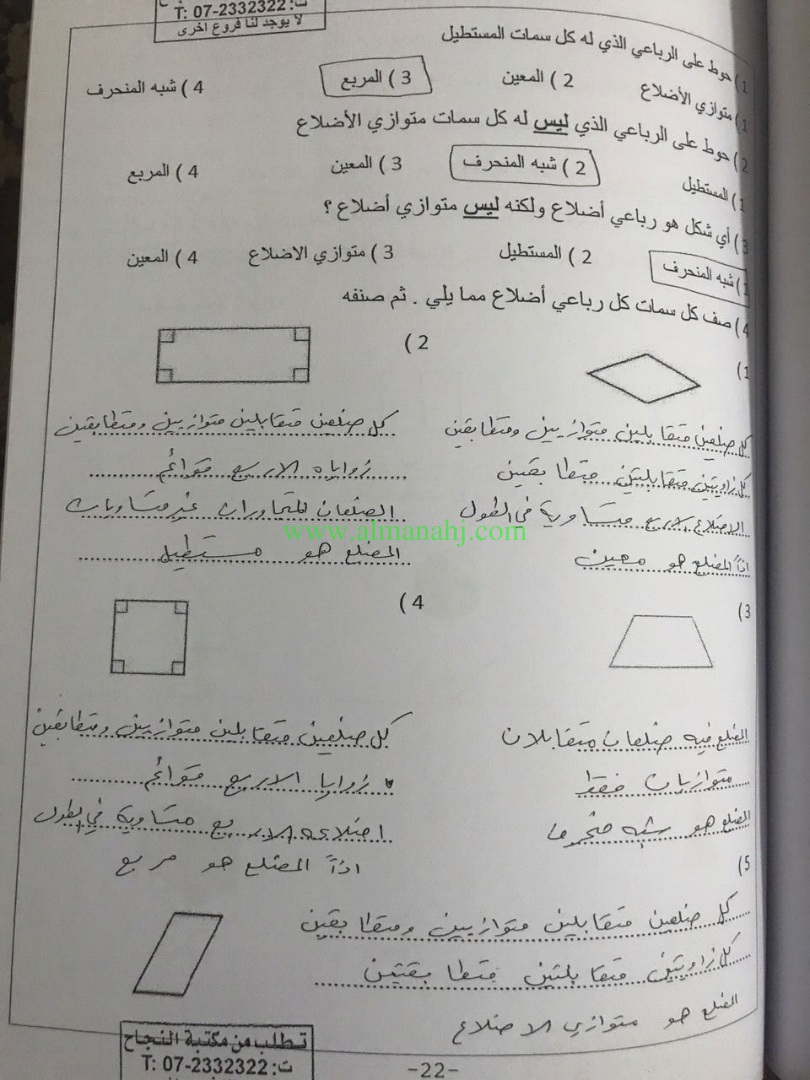 ت: 07-2332322 :T
لا يوجد لنا فروع اخرى
1) حوط على الرباعي الذي له كل سمات المستطيل
1) متوازي الأضلاع 2) المعين 3) المربع 4) شبه المنحرف
2) حوط على الرباعي الذي ليس له كل سمات متوازي الأضلاع
1) المستطيل 2) شبه المنحرف 3) المعين 4) المربع
3) أي شكل هو رباعي أضلاع ولكنه ليس متوازي أضلاع؟
1) شبه المنحرف 2) المستطيل 3) متوازي الاضلاع 4) المعين
4) صف كل سمات كل رباعي أضلاع مما يلي . ثم صنفه
1)
كل ضلعين متقابلين متوازيين ومتطابقين
كل زاويتين متقابلتين متطابقتين
الاضلاع الاربع متساوية في الطول
اذاً المضلع هو معين
2)
كل ضلعين متقابلين متوازيين ومتطابقين
زواياه الاربع قوائم
الضلعان المتجاوران غير متساويان
المضلع هو مستطيل
www.almanahj.com
3)
المضلع فيه ضلعان متقابلان
متوازيان فقط
المضلع هو شبه منحرف
4)
كل ضلعين متقابلين متوازيين ومتطابقين
زوايا الاربع قوائم
اضلاعه الاربع متساوية في الطول
اذاً المضلع هو مربع
5)
كل ضلعين متقابلين متوازيين ومتطابقين
كل زاويتين متقابلتين متطابقتين
المضلع هو متوازي الاضلاع
تطلب من مكتبة النجاح
ت: 07-2332322 :T
-22-